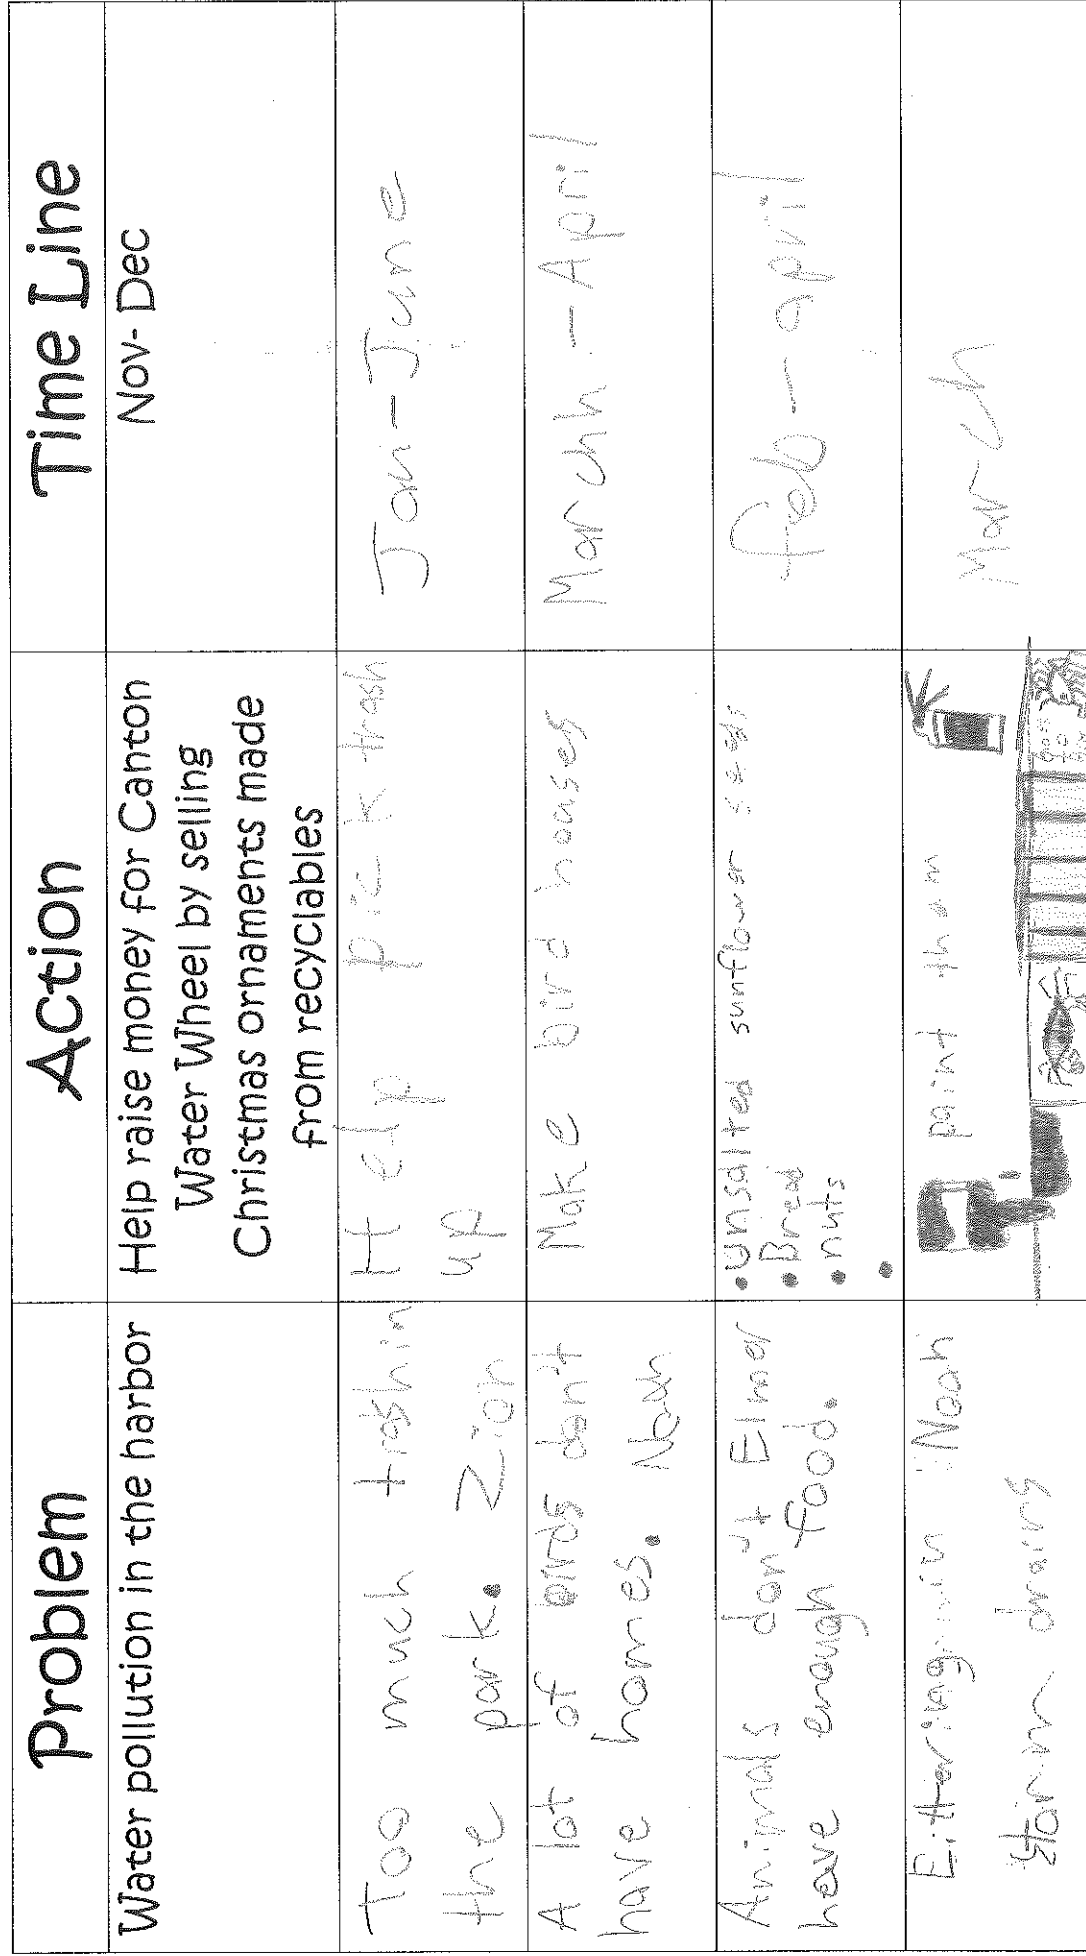 Problem
Action
Time Line
Water pollution in the harbor
Help raise money for Canton
Water Wheel by selling
Christmas ornaments made
from recyclables
Nov-Dec
Too much trashin
the park. Zion
Help pick trash
up
Jan-June
A lot of birds don't
have homes.
Make bird houses
March-April
Animals don't Elmer
have enough food.
• unsalted sunflower seeds
• Bread
• nuts
•
feb-april
in Noah
storm drains
paint them
March